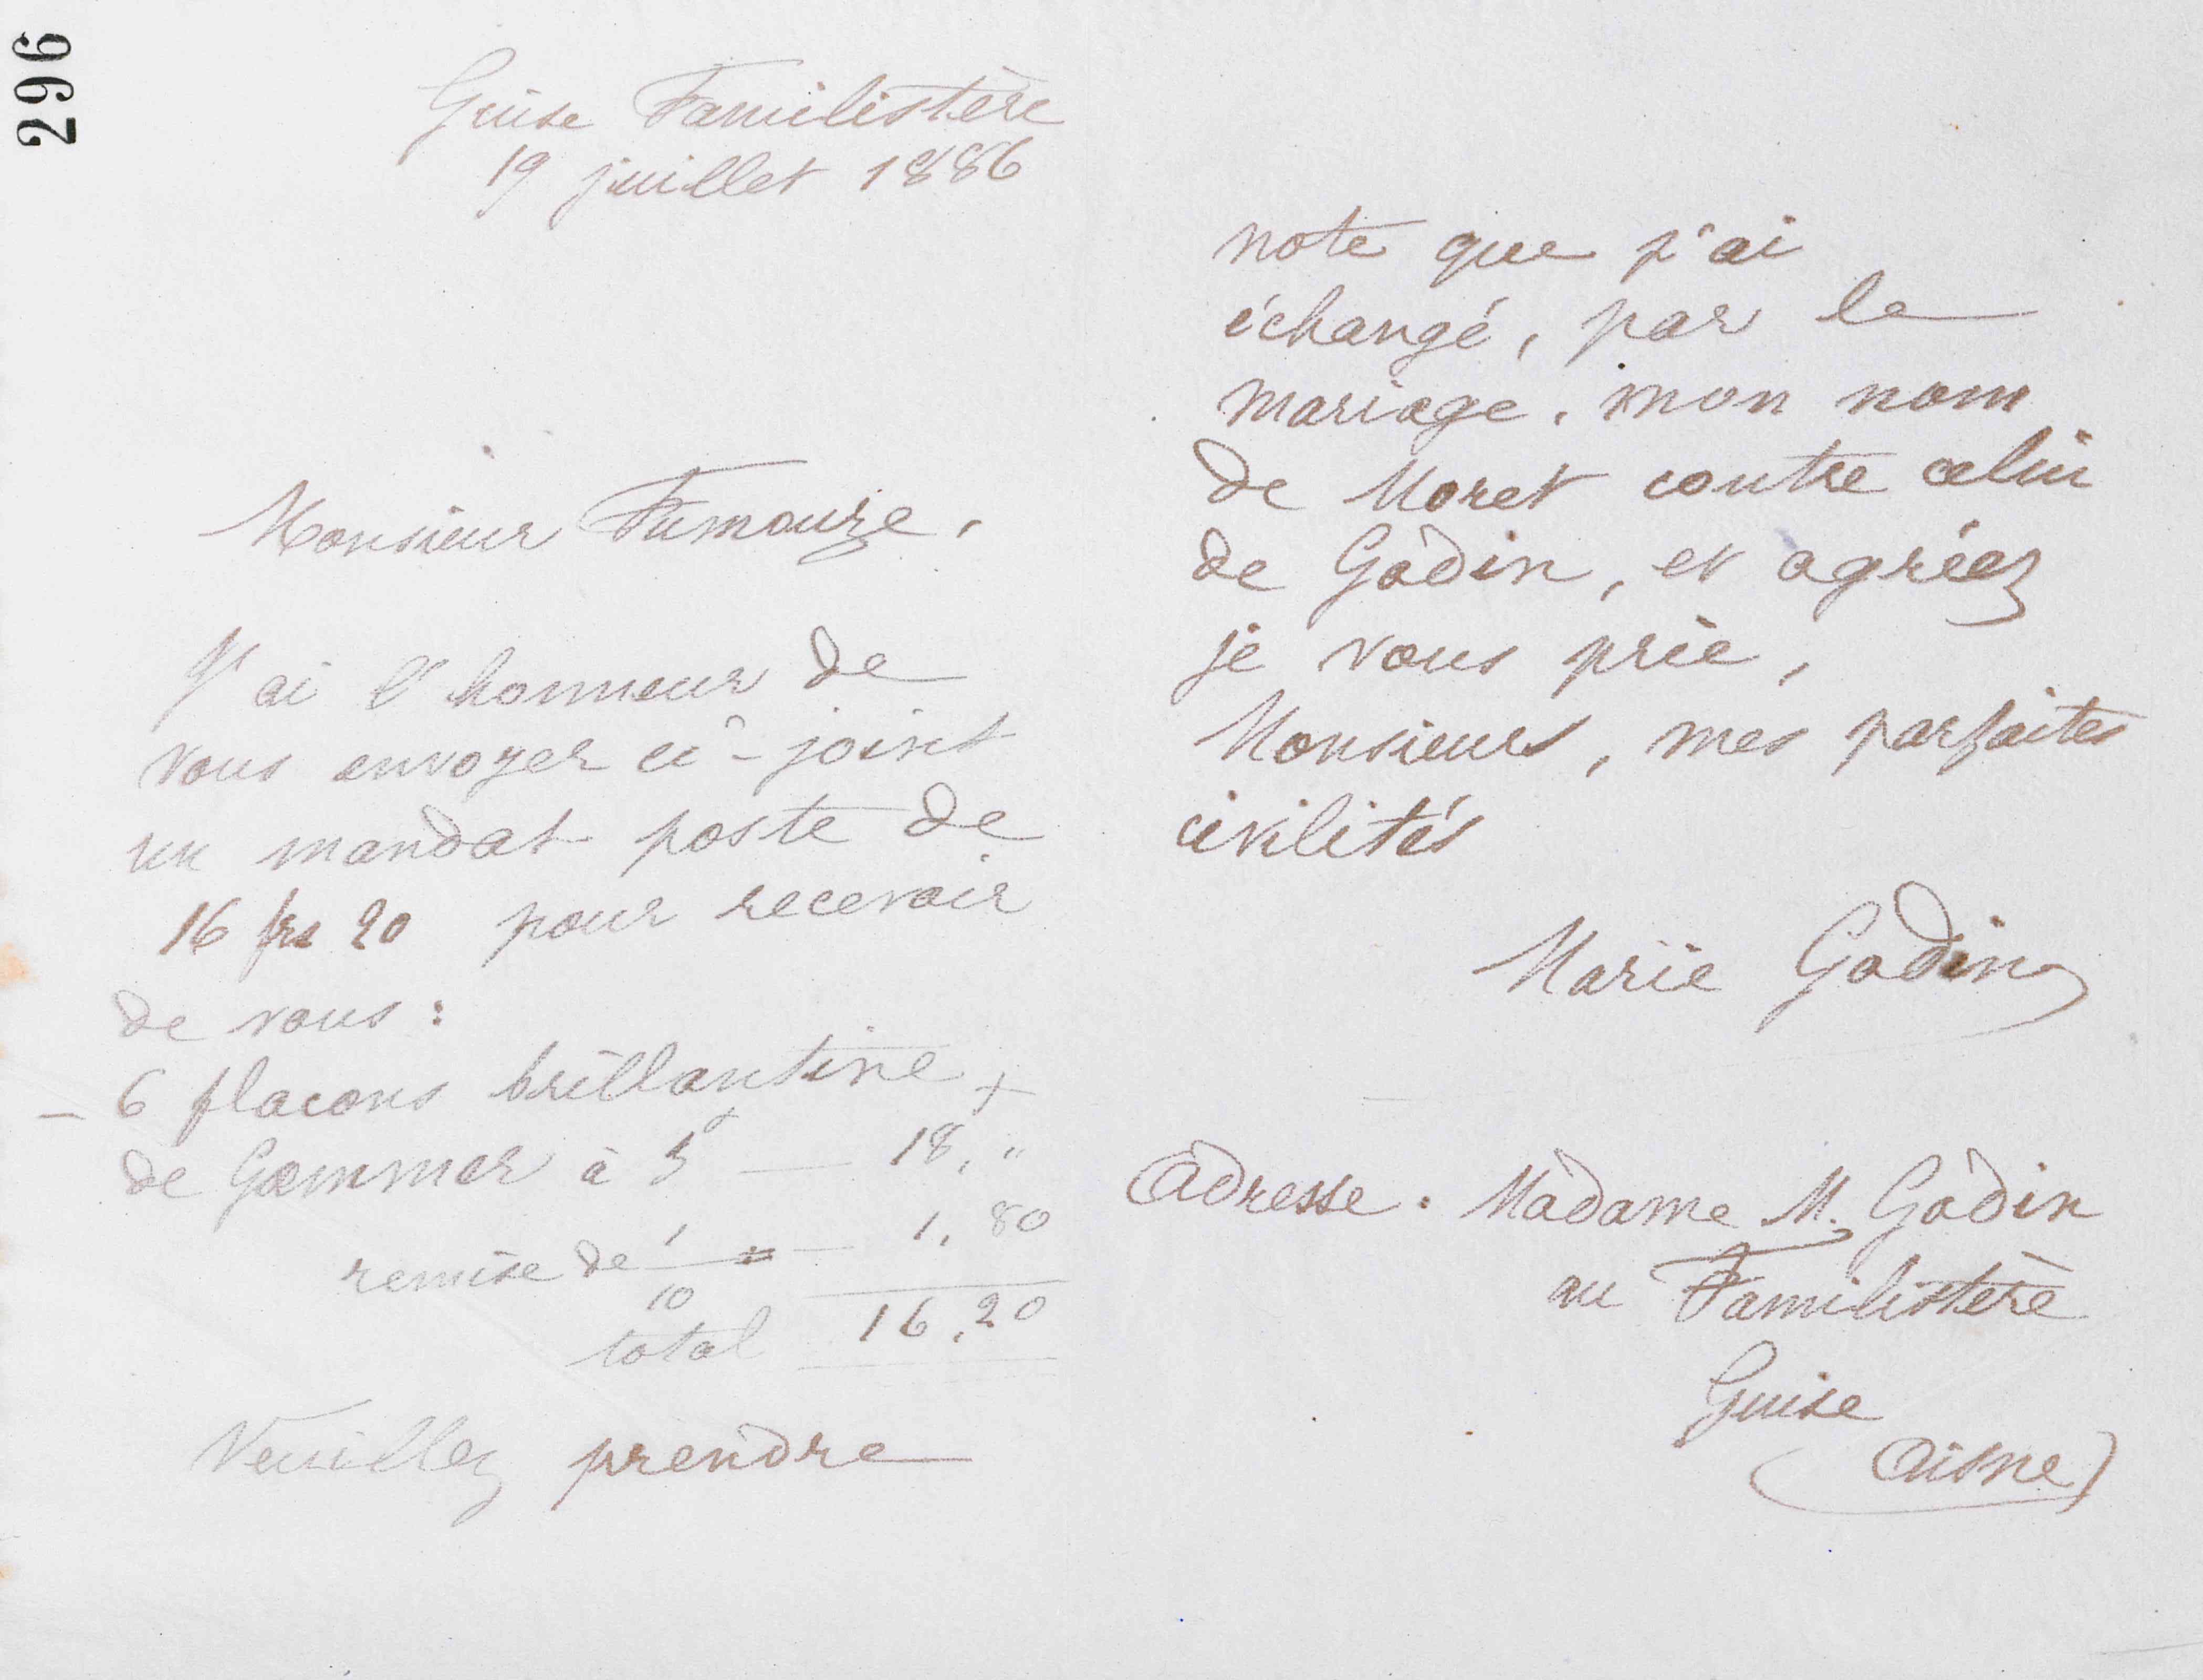 296
Guise Familistère
19 juillet 1886
Monsieur Fumouze,
J'ai l'honneur de
vous envoyer ci-joint
un mandat poste de
16 frs 20 pour recevoir
de vous :
– 6 flacons brillantine +
de Gommer à 3f — 18, "
remise de 1/10 = — 1,80
total 16,20
Veuillez prendre
note que j'ai
échangé, par le
mariage, mon nom
de Moret contre celui
de Godin, et agréez
je vous prie,
Monsieur, mes parfaites
civilités
Marie Godin
Adresse : Madame M. Godin
au Familistère
Guise
(Aisne)